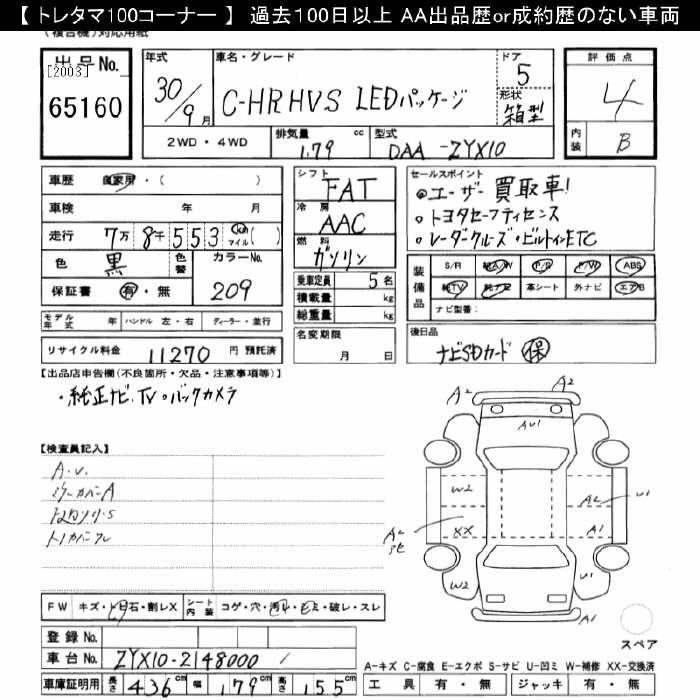 【 トレタマ100コーナー 】 過去100日以上 AA出品歴or成約歴のない車両
(複合機)対応用紙
出品No.
[2003]
65160
年式
30/9月
車名・グレード
C-HR HV S LEDパッケージ
ドア
5
形状
箱型
2WD・4WD
排気量 cc
1.79
型式
DAA -ZYX10
評価点
4
内装
B
車歴 自家用・( )
車検 年 月
走行 7万8千553 Km マイル ( )
色 黒 色替 カラーNo. 209
保証書 有・無
モデル年式 年 ハンドル 左・右 ディーラー・並行
リサイクル料金 11270 円 預託済
シフト
FAT
冷房
AAC
燃料
ガソリン
乗車定員 5名
積載量 kg
総重量 kg
名変期限
月 日
セールスポイント
◎ユーザー買取車!
○トヨタセーフティセンス
○レーダークルーズ・ビルトインETC
装備品
S/R 純A/W P/S P/W ABS
純TV 純ナビ 革シート 外ナビ エアB
ナビ型番:
後日品
ナビSDカード 保
【出品店申告欄(不良箇所・欠品・注意事項等)】
・純正ナビ、TV・バックカメラ
【検査員記入】
A.U.
ミラーカバーA
A2
A2
AU1
W2
A2
U1
XX
A2
A1
W2
U1
A1
スペア
FW キズ・トビ石・割レX シート内装 コゲ・穴・汚レ・モミ・破レ・スレ
登録No.
車台No. ZYX10-2148000
車庫証明用 長さ 436cm 幅 179cm 高さ 155cm
A-キズ C-腐食 E-エクボ S-サビ U-凹ミ W-補修 XX-交換済
工具 有・無 ジャッキ 有・無